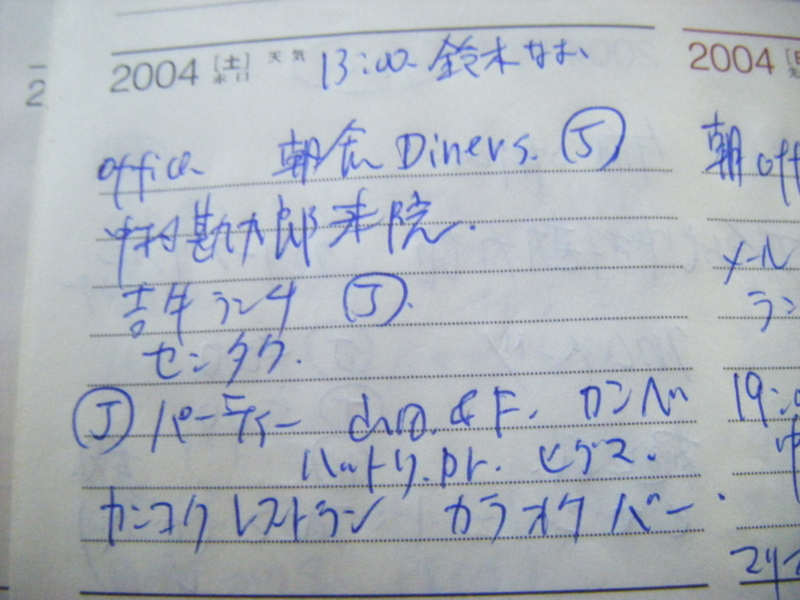 2004 [土] 天気 13:00 鈴木なお
office 朝食 Diners. Ⓙ
中村勘九郎来院.
吉牛ランチ Ⓙ.
センタク.
Ⓙ パーティー & F. カンベ
ハットリ. Dr. ヒグス.
カンコクレストラン カラオケバー.
2004
朝 off
メール
ラン
19:0
中